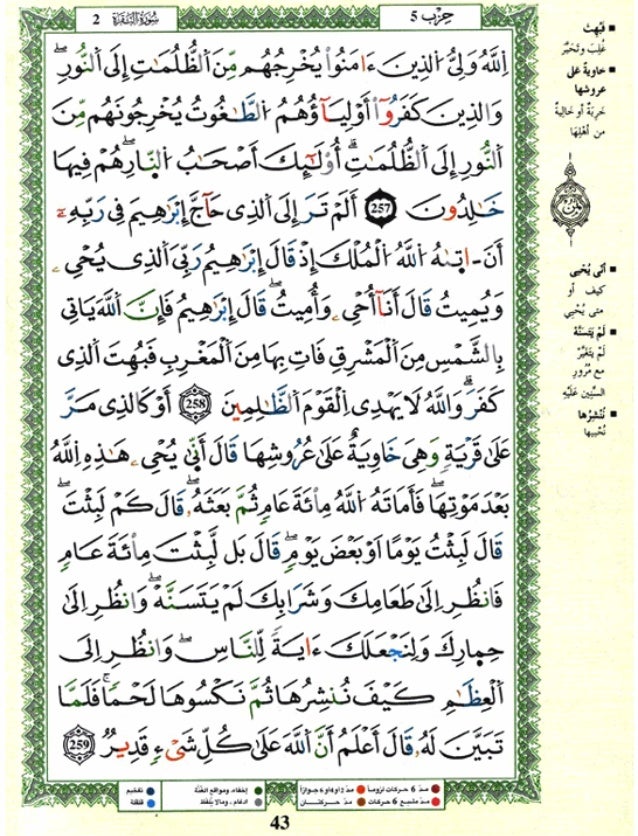 حِزْب 5
سُورَةُ البَقَرَة 2
اِللَّهُ وَلِيُّ الذِينَ ءَامَنُواْ يُخْرِجُهُم مِّنَ اَلظُّلُمَٰتِ إِلَى اَلنُّورِ
وَالذِينَ كَفَرُوٓاْ أَوْلِيَآؤُهُمُ اُلطَّٰغُوتُ يُخْرِجُونَهُم مِّنَ
اَلنُّورِ إِلَى اَلظُّلُمَٰتِ أُوْلَٰٓئِكَ أَصْحَٰبُ اُلنّ۪ارِ هُمْ فِيهَا
خَٰلِدُونَ 257 أَلَمْ تَرَ إِلَى اَلذِى حَآجَّ إِبْرَٰهِيمَ فِى رَبِّهِۦٓ
أَنَ اٰت۪يٰهُ اُللَّهُ اُلْمُلْكَ إِذْ قَالَ إِبْرَٰهِيمُ رَبِّىَ اَلذِى يُحْىِۦ
وَيُمِيتُ قَالَ أَنَآ أُحْىِۦ وَأُمِيتُ قَالَ إِبْرَٰهِيمُ فَإِنَّ اَللَّهَ يَاتِى
بِالشَّمْسِ مِنَ اَلْمَشْرِقِ فَاتِ بِهَا مَنَ اَلْمَغْرِبِ فَبُهِتَ اَلذِى
كَفَرَ وَاللَّهُ لَا يَهْدِى اِلْقَوْمَ اَلظَّٰلِمِينَ 258 أَوْ كَالذِى مَرَّ
عَلَىٰ قَرْيَةٍ وَهِىَ خَاوِيَةٌ عَلَىٰ عُرُوشِهَا قَالَ أَنّ۪يٰ يُحْىِۦ هَٰذِهِ اِللَّهُ
بَعْدَ مَوْتِهَا فَأَمَاتَهُ اُللَّهُ مِاْئَةَ عَامٍ ثُمَّ بَعَثَهُۥ قَالَ كَمْ لَبِثْتَ
قَالَ لَبِثْتُ يَوْمًا اَوْ بَعْضَ يَوْمٍ قَالَ بَل لَّبِثْتَ مِاْئَةَ عَامٍ
فَانظُرِ اِلَىٰ طَعَامِكَ وَشَرَابِكَ لَمْ يَتَسَنَّهْ وَانظُرِ اِلَىٰ
ح۪مِارِكَ وَلِنَجْعَلَكَ ءَايَةً لِّلنَّاسِ وَانظُرِ اِلَى
اَلْعِظَٰمِ كَيْفَ نُنشِرُهَا ثُمَّ نَكْسُوهَا لَحْمًا فَلَمَّا
تَبَيَّنَ لَهُۥ قَالَ أَعْلَمُ أَنَّ اَللَّهَ عَلَىٰ كُلِّ شَىْءٍ قَدِيرٌ 259
فَبُهِتَ
غُلِبَ وَتَحَيَّرَ
خاوِيةٌ عَلى
عروشها
خَرِبَةٌ أو خَالِيةٌ
من أَهْلِهَا
أَنَّى يُحْيِى
كيف أو
متى يُحْيي
لَمْ يَتَسَنَّهْ
لَمْ يَتَغَيَّرْ
مع مُرُورِ
السِّنِين عَلَيْهِ
نُنْشِرُهَا
نُحْيِيها
مدّ 6 حركات لزوماً
مدّ 2 أو 4 أو 6 جوازاً
إخفاء، ومواقع الغُنَّة
تفخيم
مدّ مشبع 6 حركات
مدّ حركتان
ادغام، وما لا يُلفَظ
قلقلة
43